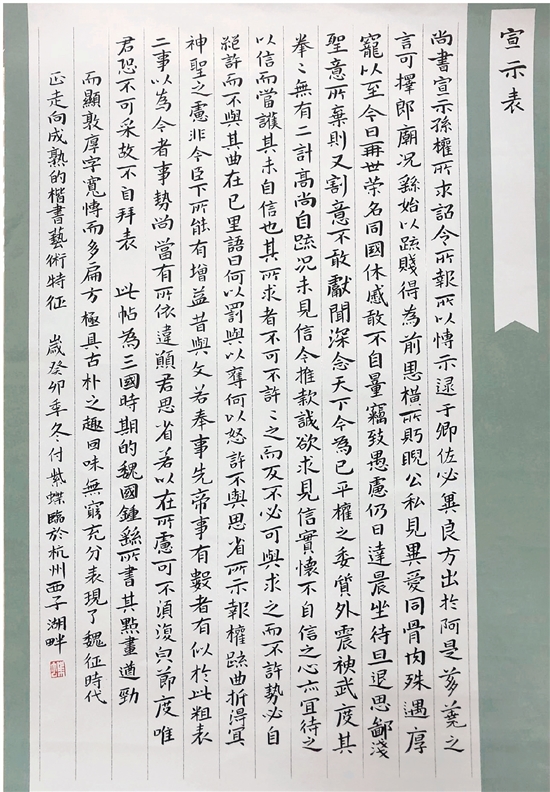 宣示表
尚書宣示孫權所求詔令所報所以博示逮于卿佐必冀良方出於阿是芻蕘之
言可擇郎廟況繇始以疏賤得為前恩橫所眄睨公私見異愛同骨肉殊遇厚
寵以至今日再世榮名同國休慼敢不自量竊致愚慮仍日達晨坐待旦退思鄙淺
聖意所棄則又割意不敢獻聞深念天下今為已平權之委質外震神武度其
拳々無有二計高尚自疏況未見信今推款誠欲求見信實懷不自信之心亦宜待之
以信而當護其未自信也其所求者不可不許々之而反不必可與求之而不許勢必自
絕許而不與其曲在已里語曰何以罰與以奪何以怒許不與思省所示報權疏曲折得宜
神聖之慮非今臣下所能有增益昔與文若奉事先帝事有數者有似於此粗表
二事以為今者事勢尚當有所依違願君思省若以在所慮可不須復皃節度唯
君恐不可采故不自拜表 此帖為三國時期的魏國鍾繇所書其點畫遒勁
而顯敦厚字寬博而多扁方極具古朴之趣回味無窮充分表現了魏征時代
正走向成熟的楷書藝術特征 歲癸卯年冬付紫蝶臨於杭州西子湖畔